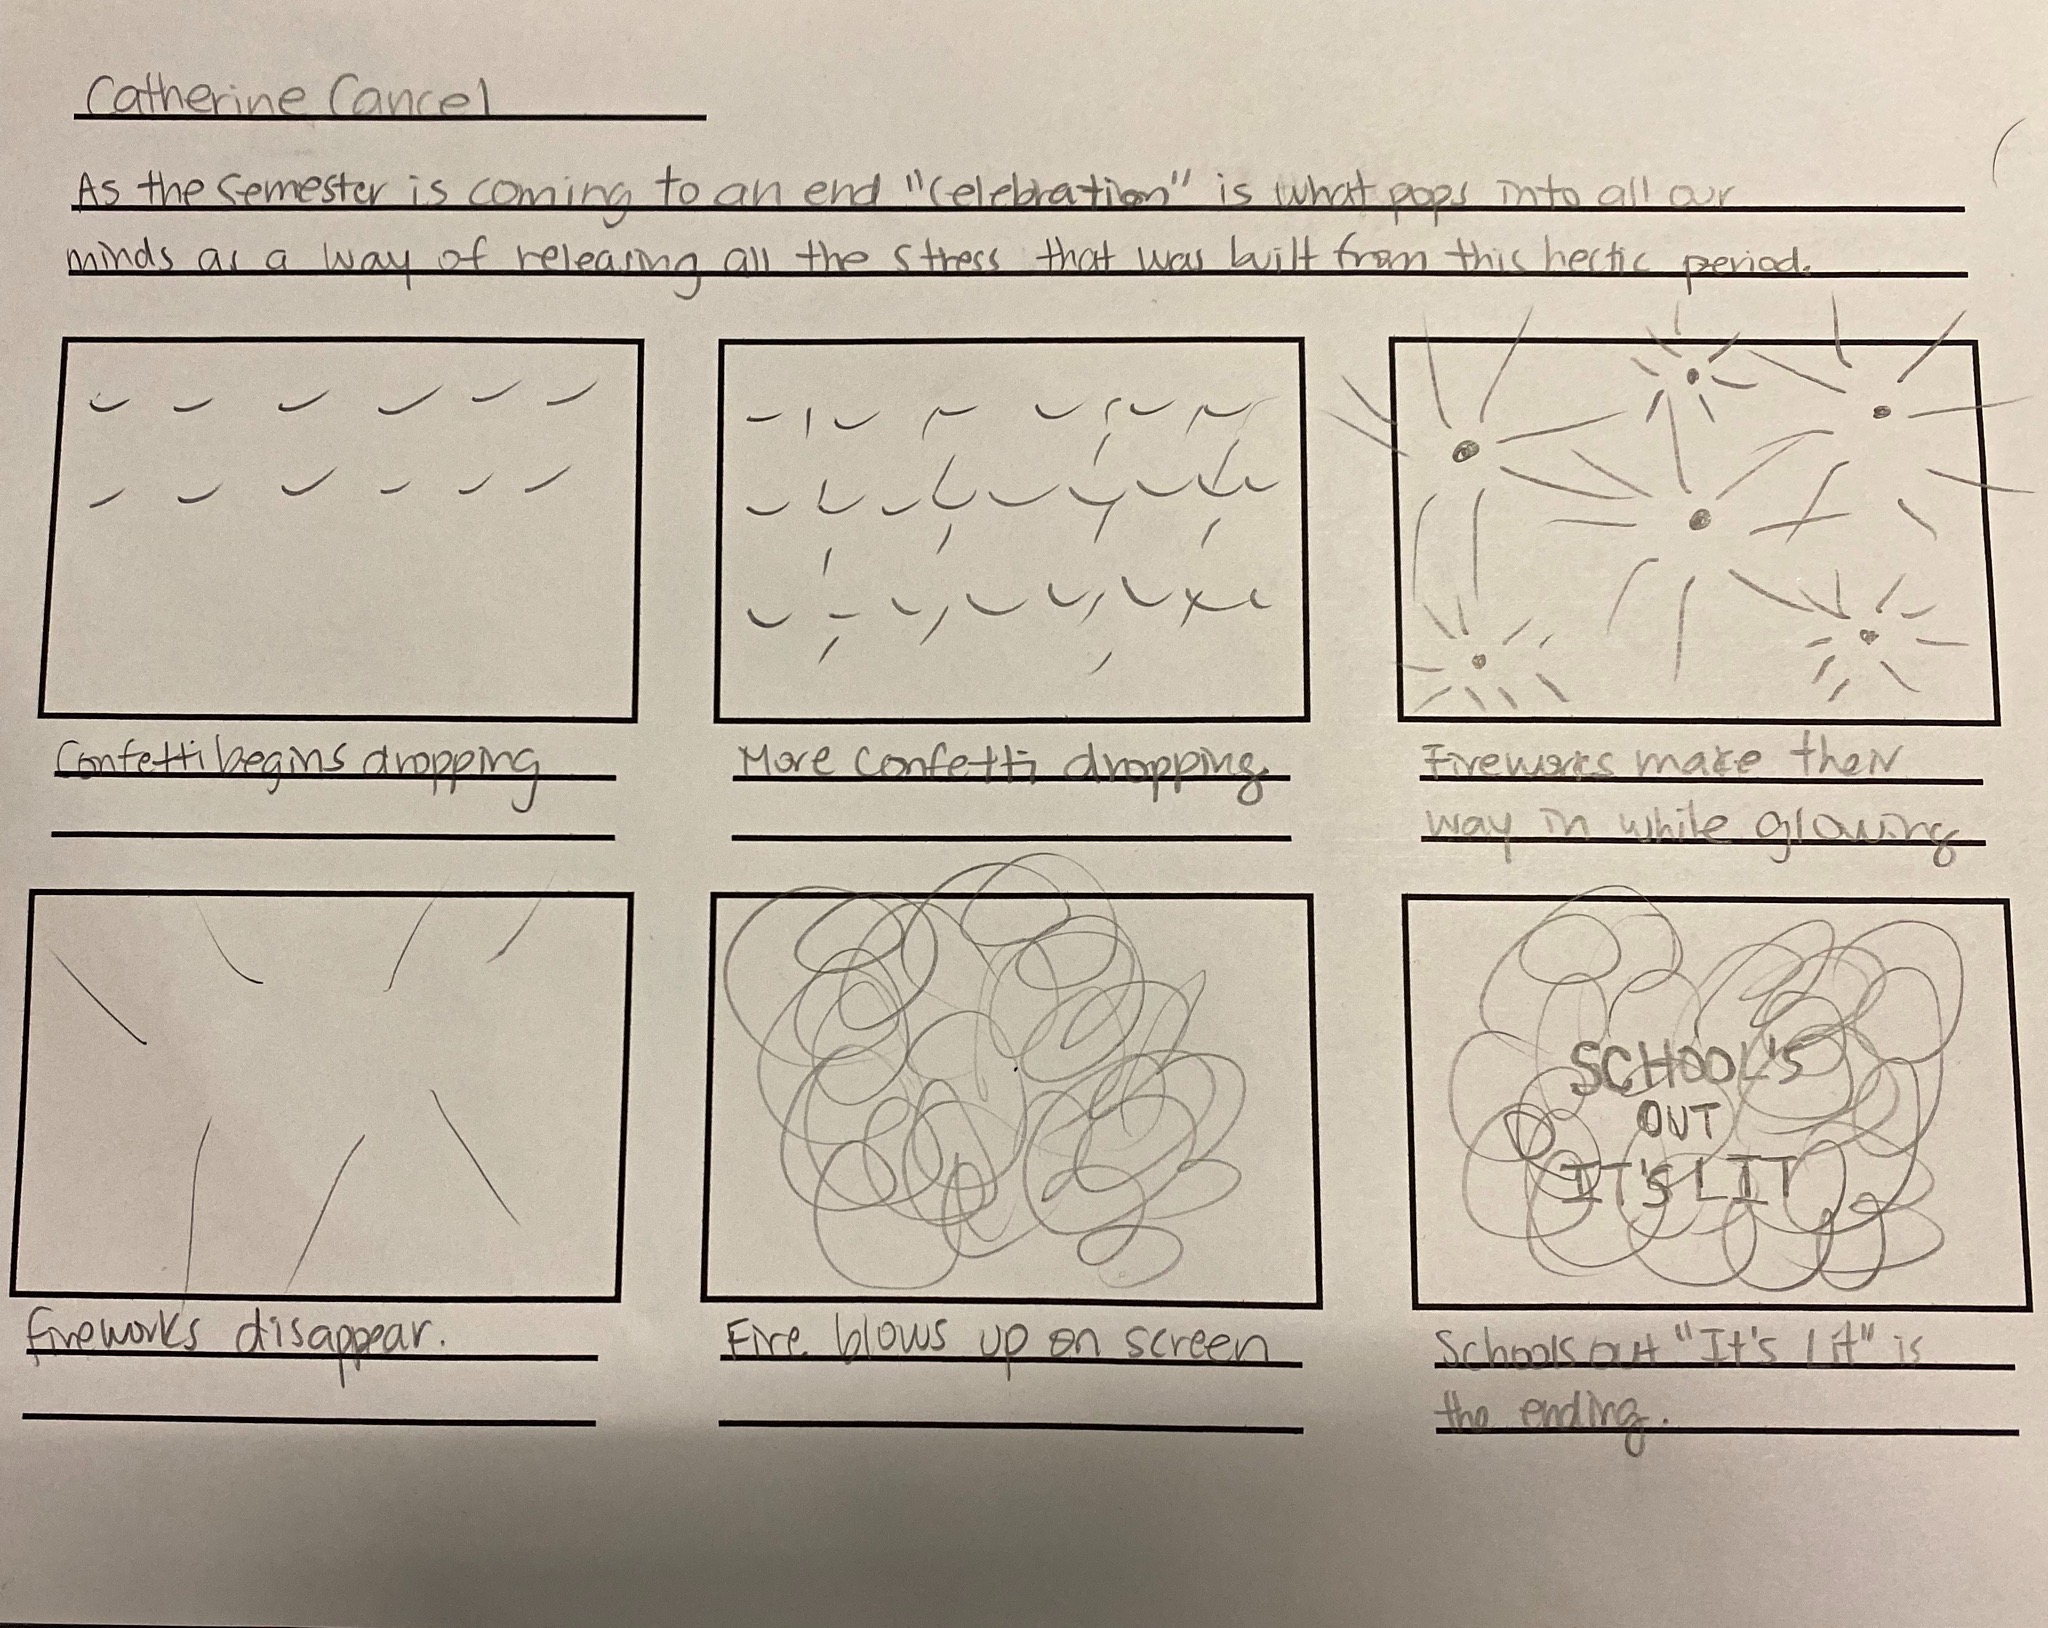 Catherine Cancel
As the semester is coming to an end "Celebration" is what pops into all our
minds as a way of releasing all the stress that was built from this hectic period.
Confetti begins dropping
More confetti dropping.
Fireworks make their
way in while glowing
SCHOOL'S
OUT
IT'S LIT
fireworks disappear.
Fire blows up on screen
Schools out "It's Lit" is
the ending.